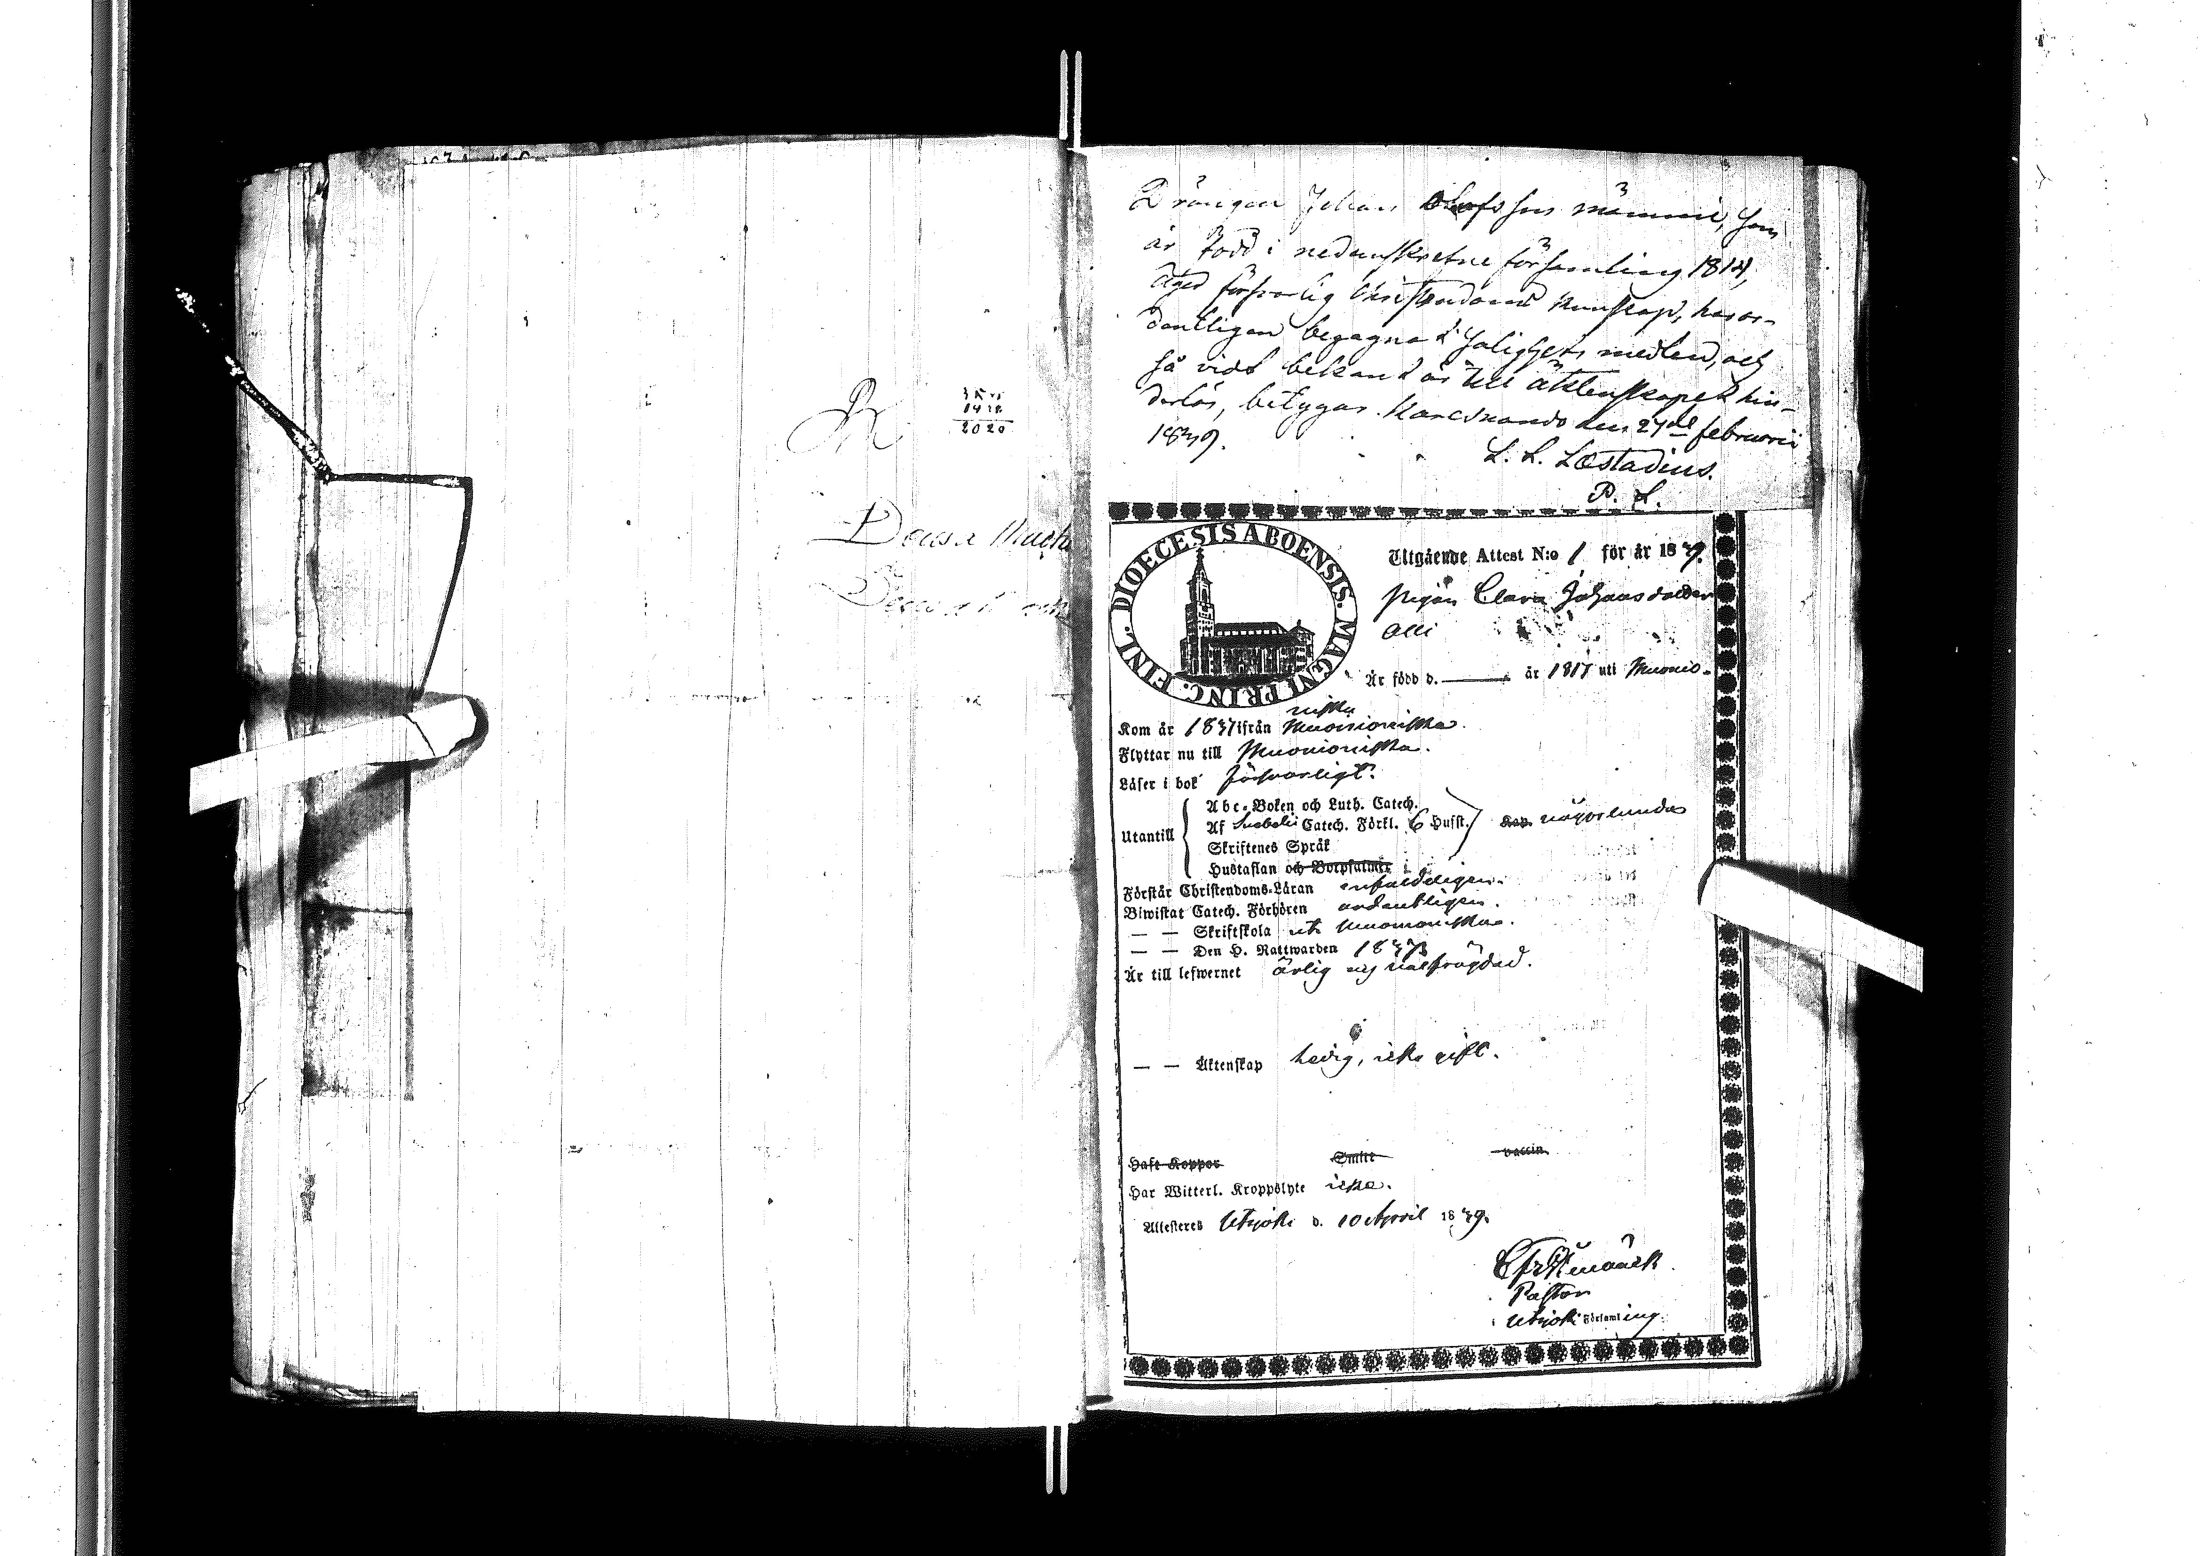 R
1412
2020
Drängen Johan Olofsson Mämmi, som
är född i nedanskrefne församling 1814,
äger försvarlig Christendoms kunskap, har or-
dentligen begagnat Salighets medlen, och
så vidt bekant är till äktenskapet hin-
derlös, betygar. Karesuando den 27de februarii
1839.
L. L. Læstadius.
P. L.
DIOECESIS ABOENSIS. MAGNI PRINC. FINL.
Utgående Attest N:o 1 för år 1839.
Pigan Clara Johansdotter
Olli
Är född d. ——— år 1817 uti Muonio-
niska
Kom år 1837 ifrån Muonioniska.
Flyttar nu till Muonioniska.
Läser i bok försvarligt.
Utantill
Abc-Boken och Luth. Catech.
Af Svebelii Catech. Förkl. 6 Hufst. någorlunda
Skriftenes Språk
Hustaflan och Botpsalmer
Förstår Christendoms-Läran enfaldeligen.
Biwistat Catech. Förhören ordentligen.
— — Skriftskola uti Muonioniska.
— — Den H. Nattwarden 1838
Är till lefwernet ärlig och välfrägdad.
— — Äktenskap ledig, icke gift.
Haft Koppor Smitt vaccin.
Har Witterl. Kroppslyte icke.
Attesteres Utsjoki d. 10 April 1839.
Pastor
Utsjoki Församling.